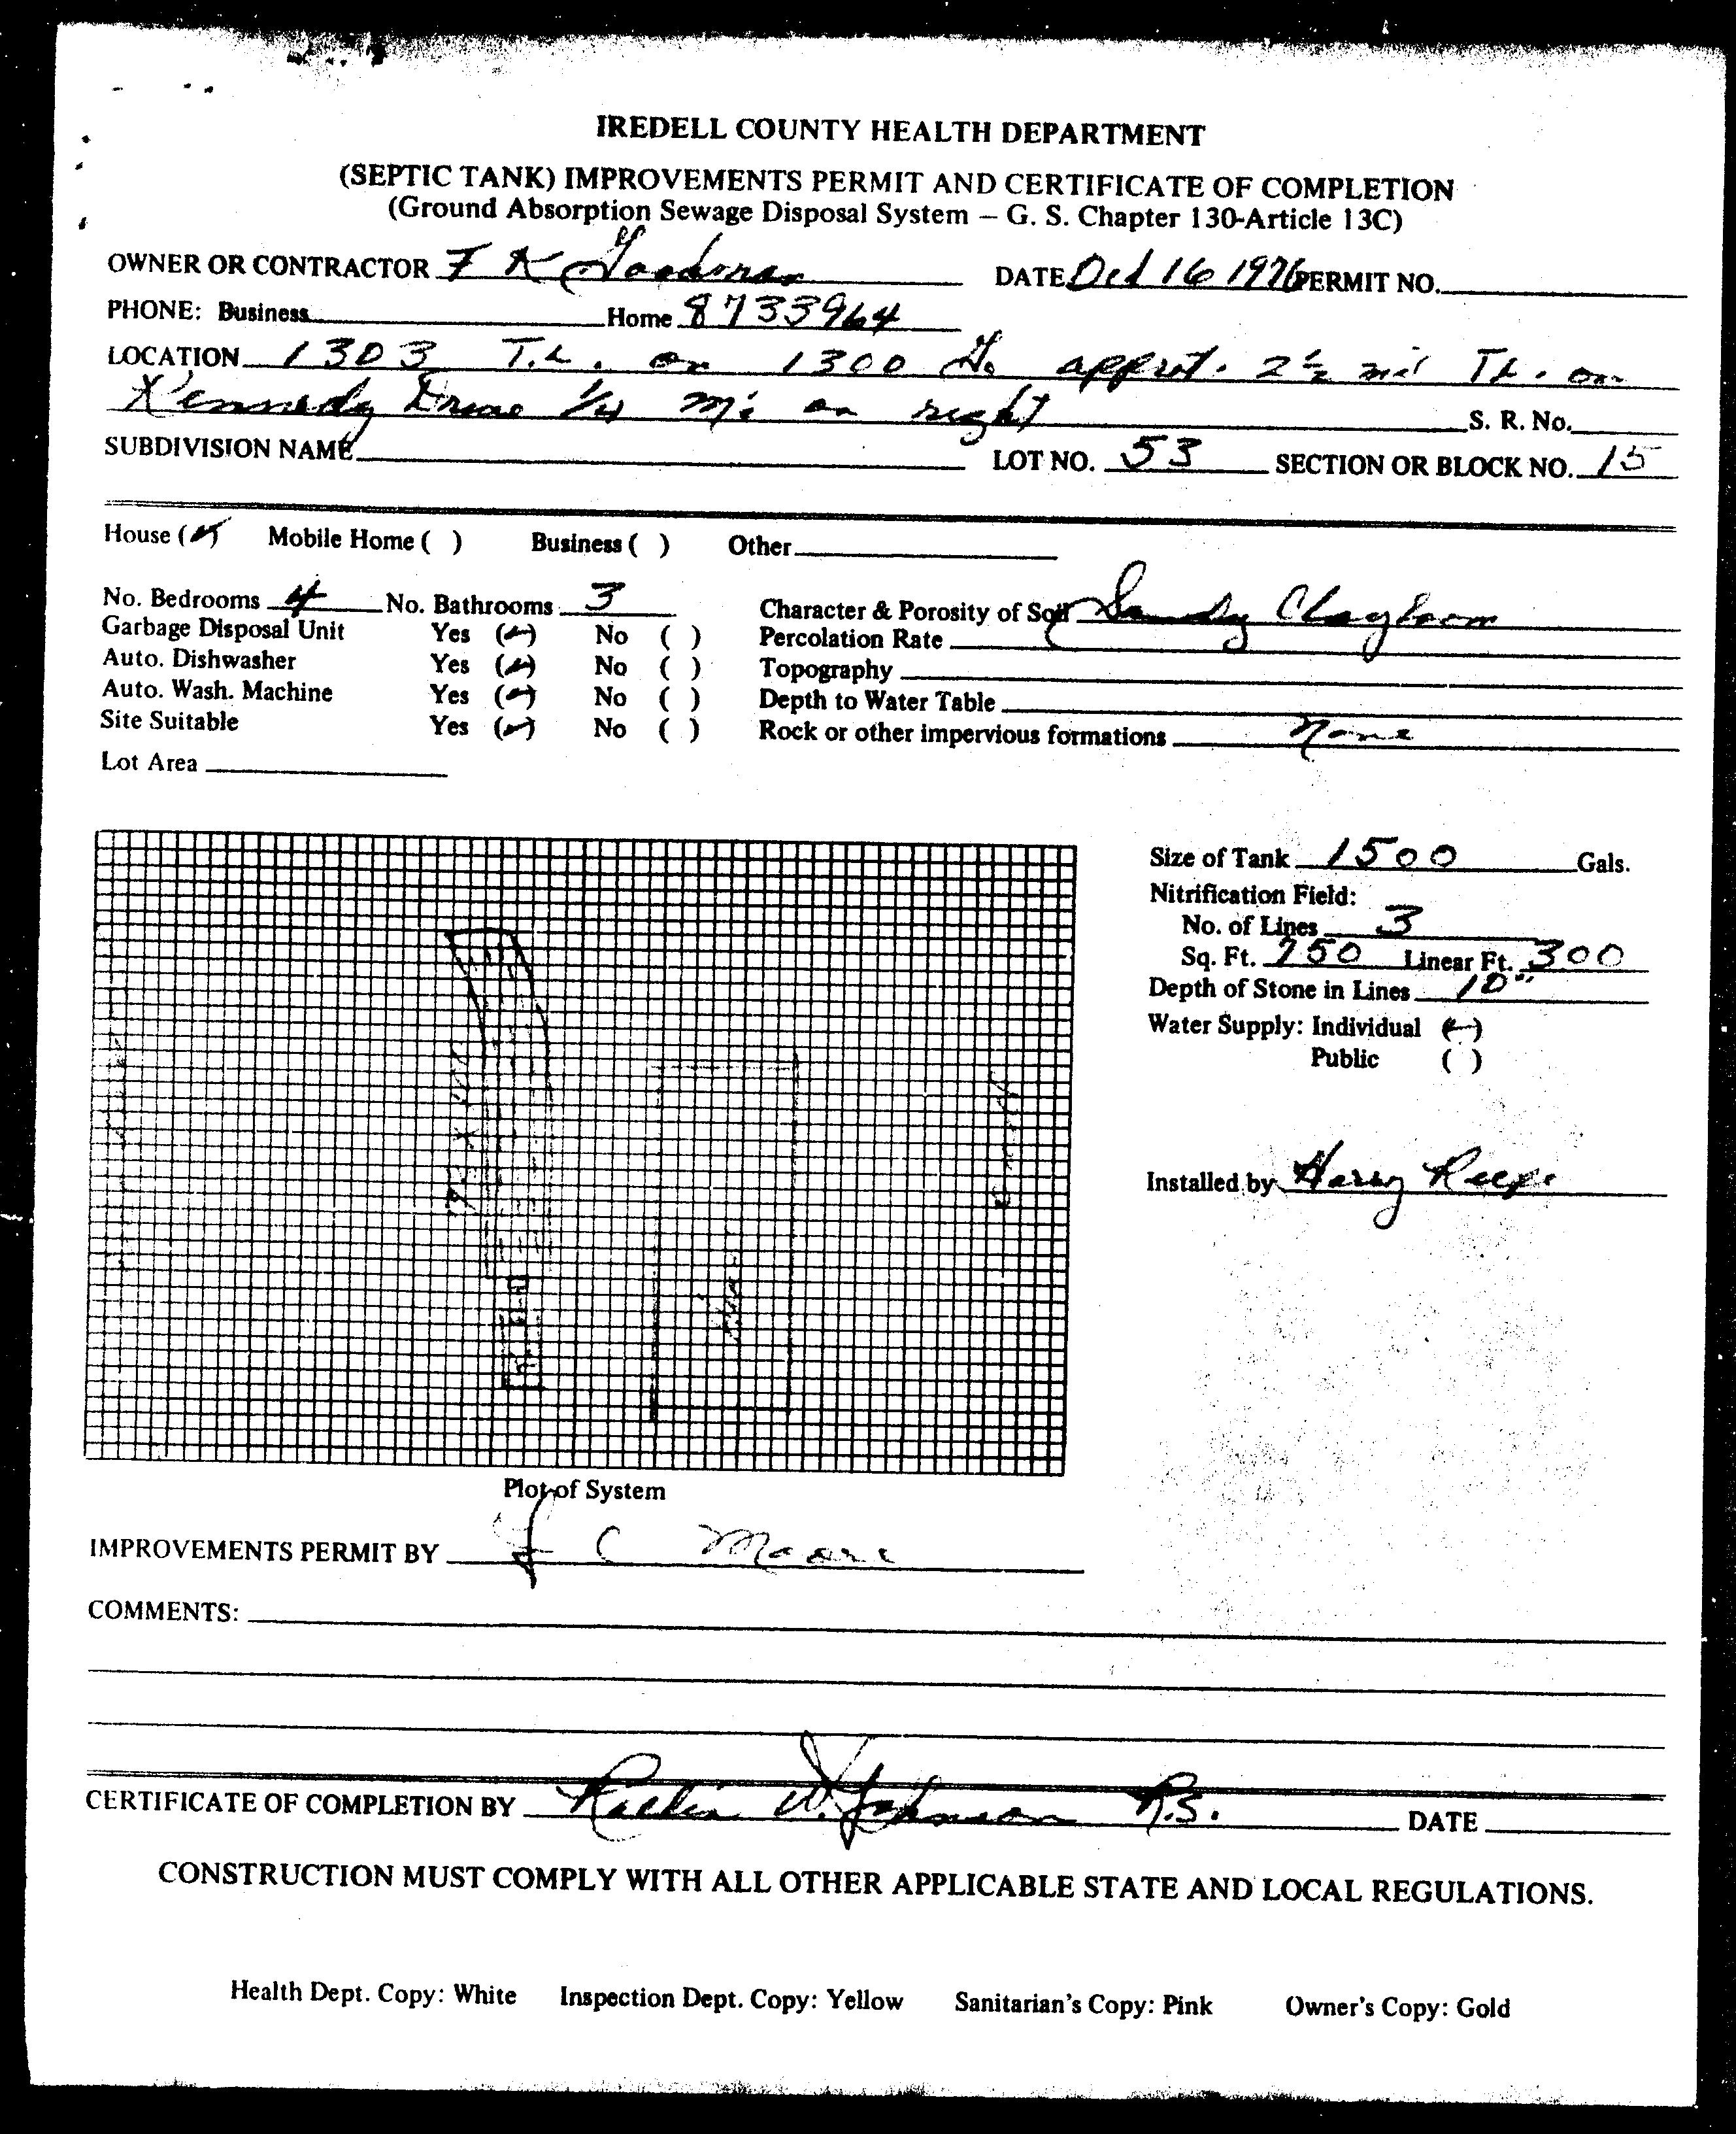 IREDELL COUNTY HEALTH DEPARTMENT
(SEPTIC TANK) IMPROVEMENTS PERMIT AND CERTIFICATE OF COMPLETION
(Ground Absorption Sewage Disposal System – G. S. Chapter 130-Article 13C)
OWNER OR CONTRACTOR F K Goodman DATE Oct 16 1976 PERMIT NO.
PHONE: Business Home 8733964
LOCATION 1303 T.L. on 1300 Go approx. 2½ mi TL. on
Kennedy Drive 1/4 mi on right S. R. No.
SUBDIVISION NAME LOT NO. 53 SECTION OR BLOCK NO. 15
House (✓) Mobile Home ( ) Business ( ) Other
No. Bedrooms 4 No. Bathrooms 3 Character & Porosity of Soil Sandy Clayloom
Garbage Disposal Unit Yes (✓) No ( ) Percolation Rate
Auto. Dishwasher Yes (✓) No ( ) Topography
Auto. Wash. Machine Yes (✓) No ( ) Depth to Water Table
Site Suitable Yes (✓) No ( ) Rock or other impervious formations None
Lot Area
Size of Tank 1500 Gals.
Nitrification Field:
No. of Lines 3
Sq. Ft. 750 Linear Ft. 300
Depth of Stone in Lines 10"
Water Supply: Individual (✓)
Public ( )
Installed by Harry
Plot of System
IMPROVEMENTS PERMIT BY J C Moore
COMMENTS:
CERTIFICATE OF COMPLETION BY W. Johnson R.S. DATE
CONSTRUCTION MUST COMPLY WITH ALL OTHER APPLICABLE STATE AND LOCAL REGULATIONS.
Health Dept. Copy: White Inspection Dept. Copy: Yellow Sanitarian's Copy: Pink Owner's Copy: Gold